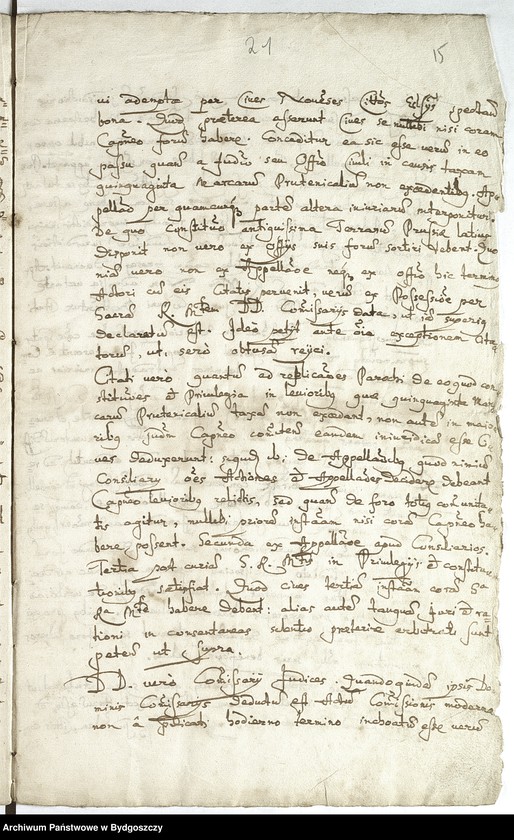 21
15
vi adempta per Cives Noven̄ses Cittos
bona. Quod præterea asserunt Cives se nullubi nisi coram
Capneo forum habere. Conceditur ea sic esse verum in eo
passu quam a Judico seu Offo Civili in causis taxam
quinquaginta Marcarum Prutenicaliū non excedentibq Ap
pellão per quamcunq partē altera iniuriarū interponitur.
de quo Constitutio antiquissima Terrarum Prussiæ latius
disponit non vero ex Offijs suis forum sortiri debent. Quo
niā vero non ex Appellãoe neq ex offo hic termino
Actori cum eis Citatis pervenit, verum ex Possessiõe per
Sacrā R. Mtem DD. Comissarijs data, ut id superiq
declaratū est. Ideo petijt ante oīa exceptionem Cita
torum, ut serò obtusã reijci.
Citati verò quantum ad replicãoes Parochi de eo quod con
stitutiões et Privilegia in levioribq quæ quinquaginta Mar
carum Prutenicaliū taxã non excedant, non autem in maio
ribq Judm Capneo comitem eandem iniuridicos esse Ci
ves deduxerunt: de Appellãoibq quod nimirū
Consiliarij oēs Actiones et Appellãoes decidere debeant
Capneo levioribq relictis, sed quam de foro totiq comunita
tis agitur, nullubi priorem instãam nisi corã Capneo ha
bere possent. Secunda ex Appellãoe apud Consiliarios.
Tertia pat curiam S. R. Mtis in Privilegijs et constitu
tionibq satisfiat. Quod cives tertiã instãam corã Sa
Ra Mte habere debent: alias autem tanquam juri et ra
tioni in consentaneas silentio præterire arbitrati sunt
petens ut supra.
DD. verò Comissarij Judices. Quandoquidem ipsis Do
minis Comissarijs deductū est Actū Comissionis modernæ
non â pridicati hodierno termino inchoatū esse verum
Archiwum Państwowe w Bydgoszczy